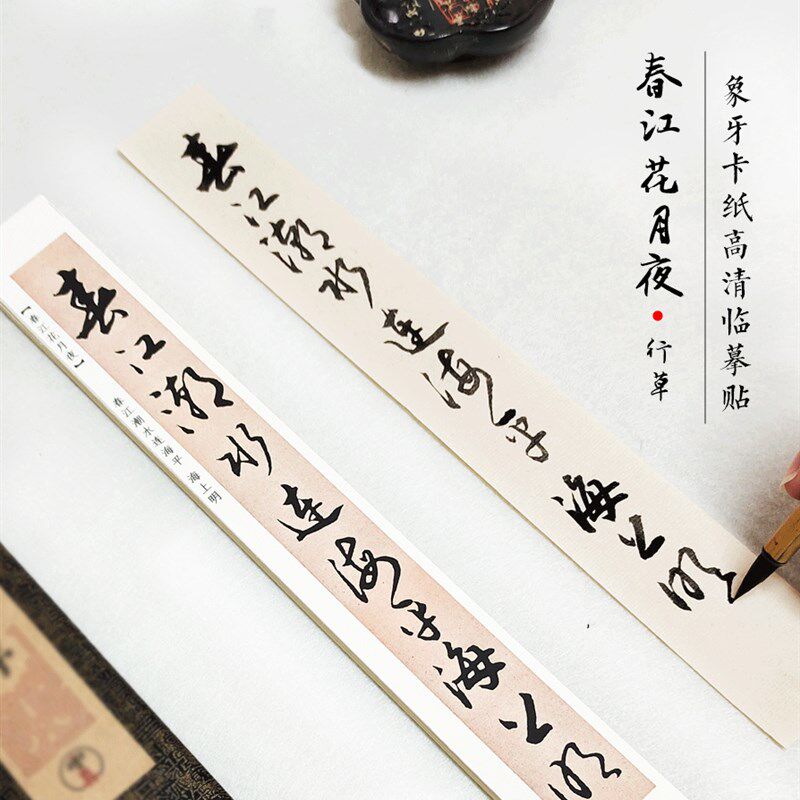 象牙卡纸高清临摹贴
春江花月夜·行草
春江潮水连海平海上明
春江潮水连海平海上明
【春江花月夜】
春江潮水连海平 海上明